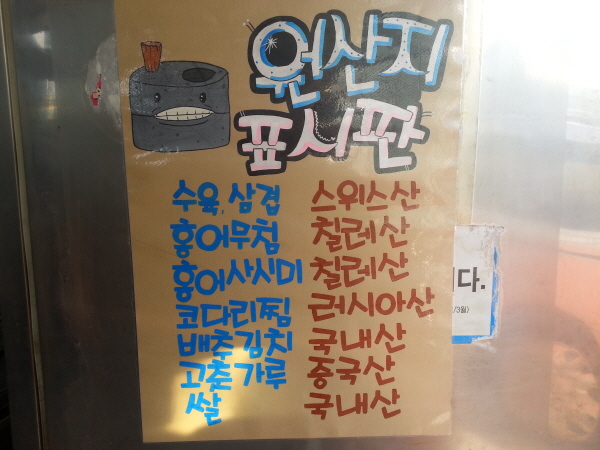 원산지
표시판
수육, 삼겹 스위스산
홍어무침 칠레산
홍어사시미 칠레산
코다리찜 러시아산
배추김치 국내산
고춧가루 중국산
쌀 국내산
다.
/3월)